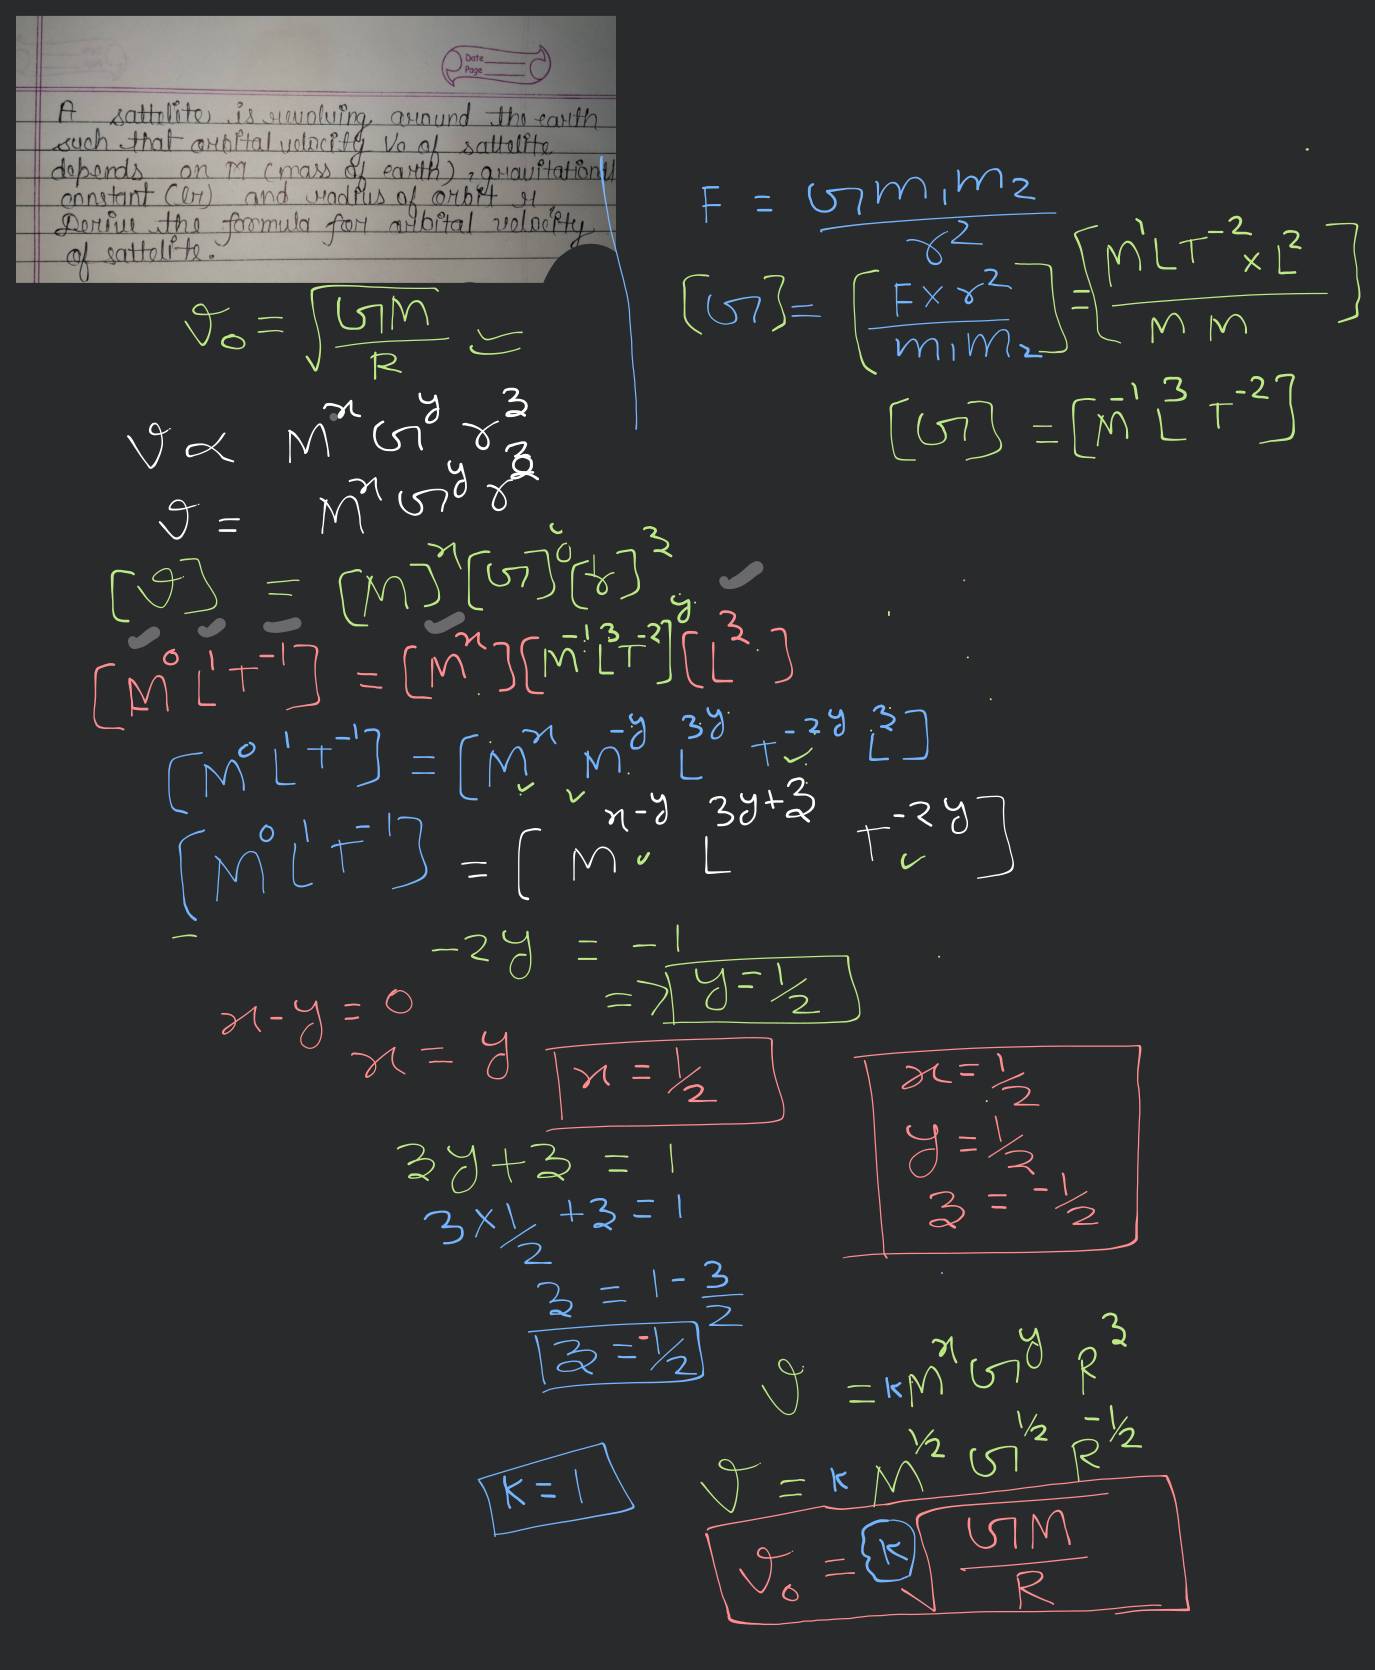 Date
Page
A sattelite is revolving around the earth
such that orbital velocity Vo of sattelite
depends on M (mass of earth), gravitational
constant (G) and radius of orbit r
Derive the formula for orbital velocity
of sattelite.
v₀ = √(GM/R)
v ∝ M^x G^y r^z
v = M^x G^y r^z
[v] = [M]^x [G]^y [r]^z
[M⁰ L¹ T⁻¹] = [M^x] [M⁻¹ L³ T⁻²]^y [L^z]
[M⁰ L¹ T⁻¹] = [M^x M^-y L^3y T^-2y L^z]
[M⁰ L¹ T⁻¹] = [M^x-y L^3y+z T^-2y]
F = Gm₁m₂/r²
[G] = [F × r²/m₁m₂] = [M¹LT⁻² × L²/M M]
[G] = [M⁻¹ L³ T⁻²]
-2y = -1
=> y = 1/2
x - y = 0
x = y
x = 1/2
3y + z = 1
3 × 1/2 + z = 1
z = 1 - 3/2
z = -1/2
x = 1/2
y = 1/2
z = -1/2
v = kM^x G^y R^z
v = k M^1/2 G^1/2 R^-1/2
K = 1
v₀ = k √(GM/R)